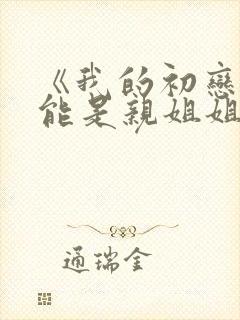 《我的初戀
能是親姐姐
通瑞金